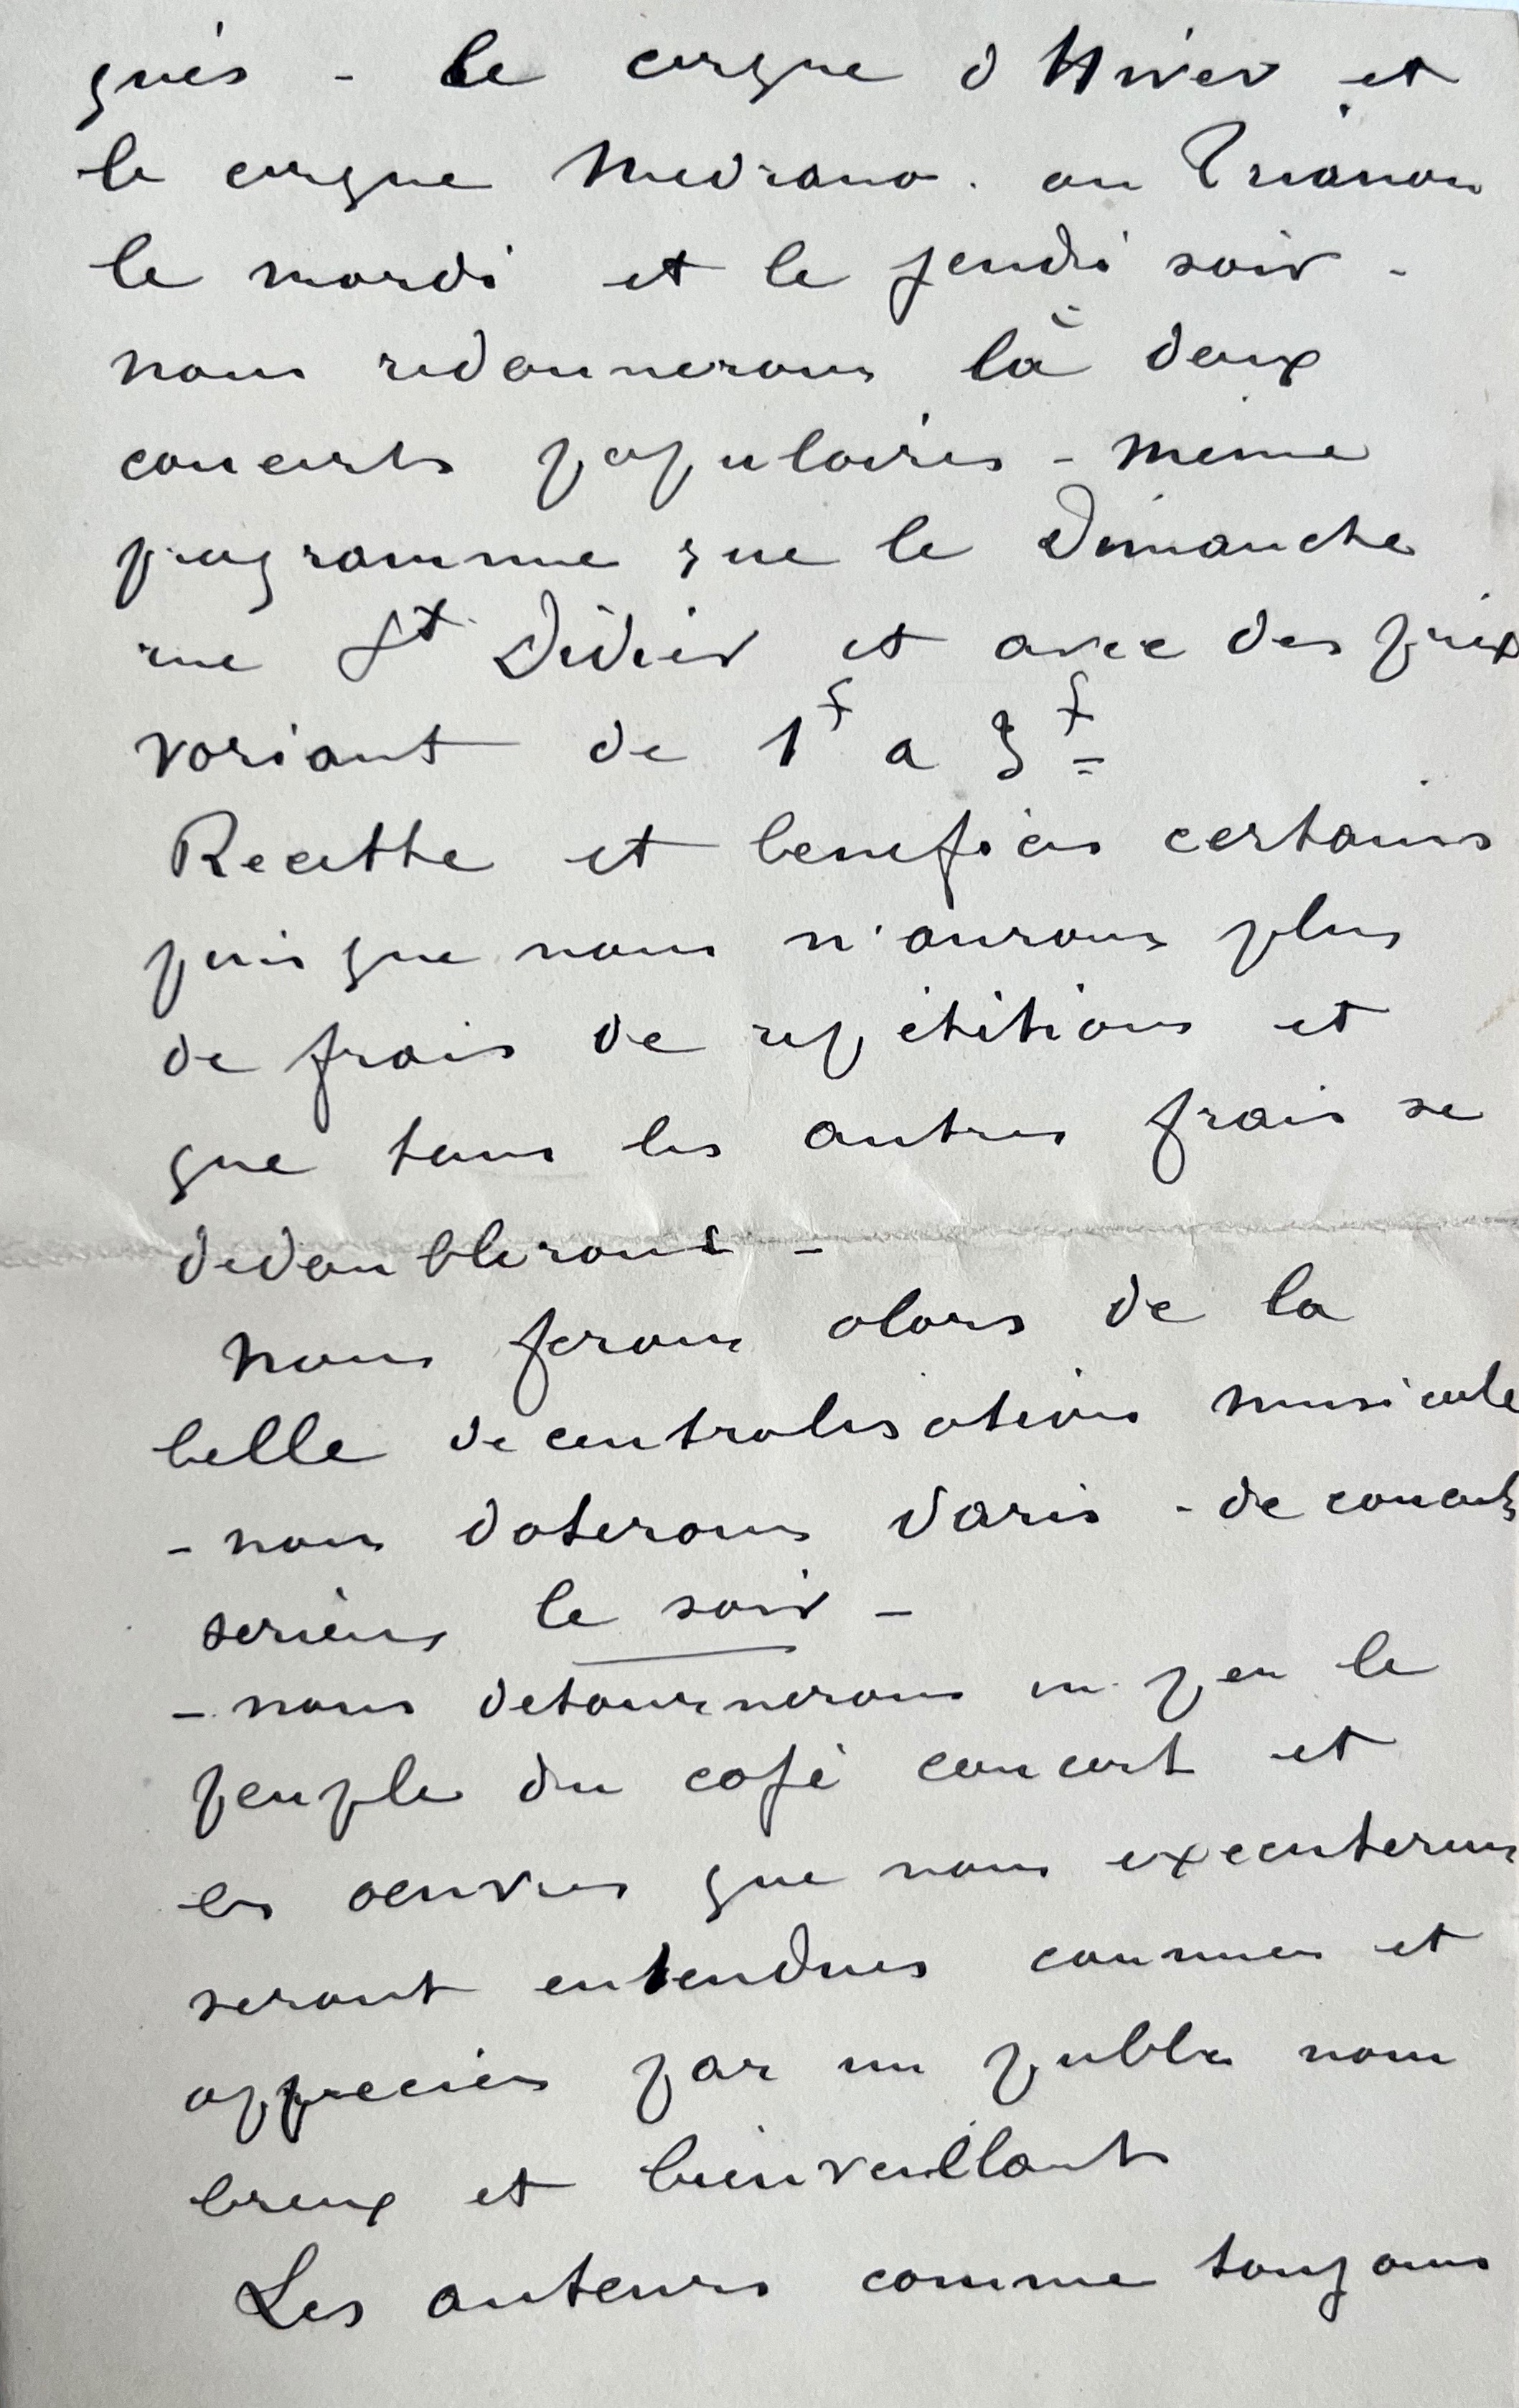 qués - le cirque d'Hiver et
le cirque Medrano. au Trianon
le mardi et le jeudi soir -
nous redonnerons là deux
concerts populaires - même
programme que le Dimanche
rue St Didier et avec des prix
variant de 1f a 3f
Recette et benefices certains
puisque nous n'aurons plus
de frais de repétitions et
que tous les autres frais se
dedoublerons -
nous ferons alors de la
belle decentralisation musicale
- nous doterons Paris - de concerts
serieux le soir -
- nous detournerons un peu le
peuple du café concert et
les oeuvres que nous executerons
seront entendues connues et
appreciées par un public nom
breux et bienveillant
Les auteurs comme toujours